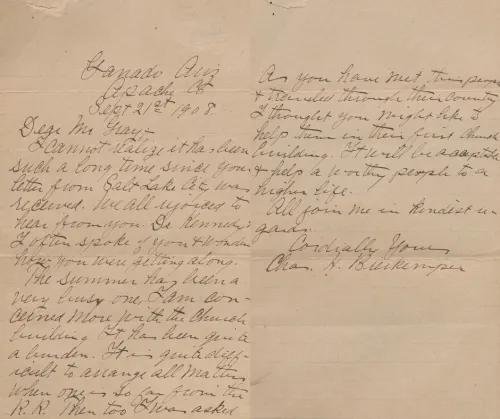 Ganado Ariz
Apache Co
Sept 21st 1908.
Dear Mr Gray-
I cannot realize it has been
such a long time since your
letter from Salt Lake City was
received. We all rejoiced to
hear from you. Dr Kennedy &
I often spoke of you & wonder
how you were getting along.
The summer has been a
very busy one. I am con-
cerned more with the Church
building. It has been quite
a burden. It is quite diff-
icult to arrange all matters
when one is so far from the
R.R. Then too I was asked
As you have met this people
& traveled through their country
I thought you might like to
help them in their first Church
building. It will be acceptable
& help a worthy people to a
higher life.
All join me in kindest re-
gards.
Cordially Yours
Chas. H. Bierkemper